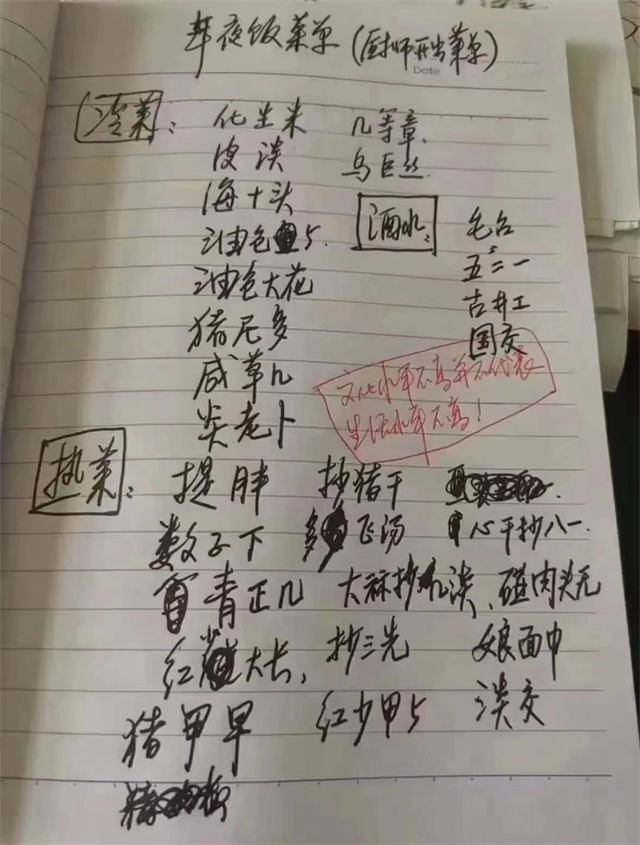 年夜饭菜单(厨师开出菜单)
Date
冷菜: 化生米 几等章
皮淡 乌巨丝
海十头
油色5.
油色大花
猪尼多
咸草几
炎老卜
酒水: 毛台
五二一
古井工
国交
文化水平不高并不代表
生活水平不高!
热菜: 提胖 抄猪干
数子下 飞汤 心干抄八一.
青正几 大麻抄淡、碰肉头元
红大长, 抄三先 娘面巾
猪甲早 红少甲5 淡交